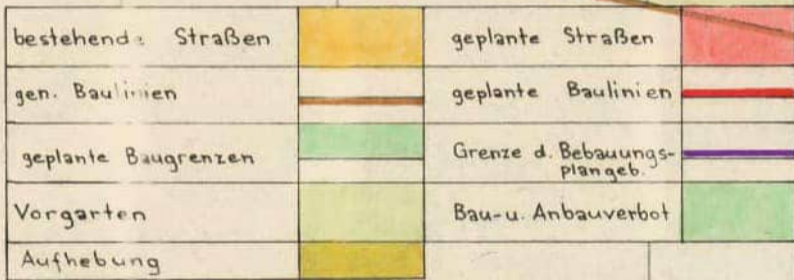 bestehende Straßen
geplante Straßen
gen. Baulinien
geplante Baulinien
geplante Baugrenzen
Grenze d. Bebauungs-
plangeb.
Vorgarten
Bau-u. Anbauverbot
Aufhebung